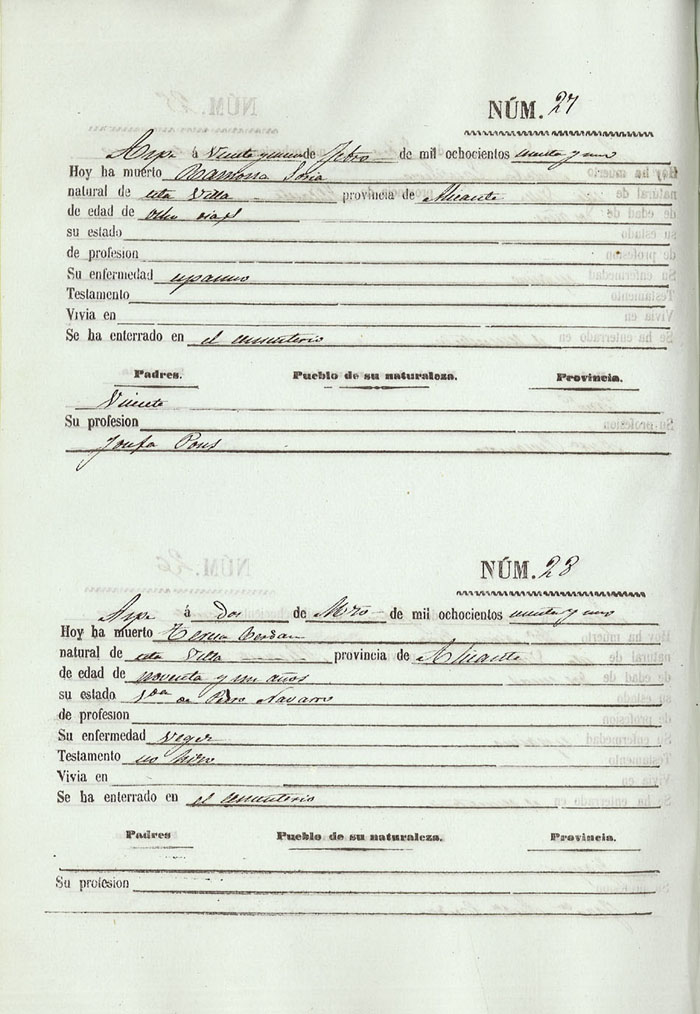 NÚM. 27
Aspe á Veinte y uno de Febro de mil ochocientos
Hoy ha muerto Ramona Soria
natural de esta Villa provincia de Alicante
de edad de Ocho dias
su estado
de profesion
Su enfermedad espasmo
Testamento
Vivia en
Se ha enterrado en el cementerio
Padres. Pueblo de su naturaleza. Provincia.
Vicente
Su profesion
Josefa Pons
NÚM. 28
Aspe á Dos de Mzo de mil ochocientos
Hoy ha muerto Teresa
natural de esta Villa provincia de Alicante
de edad de noventa y un años
su estado Vda de Pedro Navarro
de profesion
Su enfermedad Vegez
Testamento no hizo
Vivia en
Se ha enterrado en el cementerio
Padres Pueblo de su naturaleza. Provincia.
Su profesion